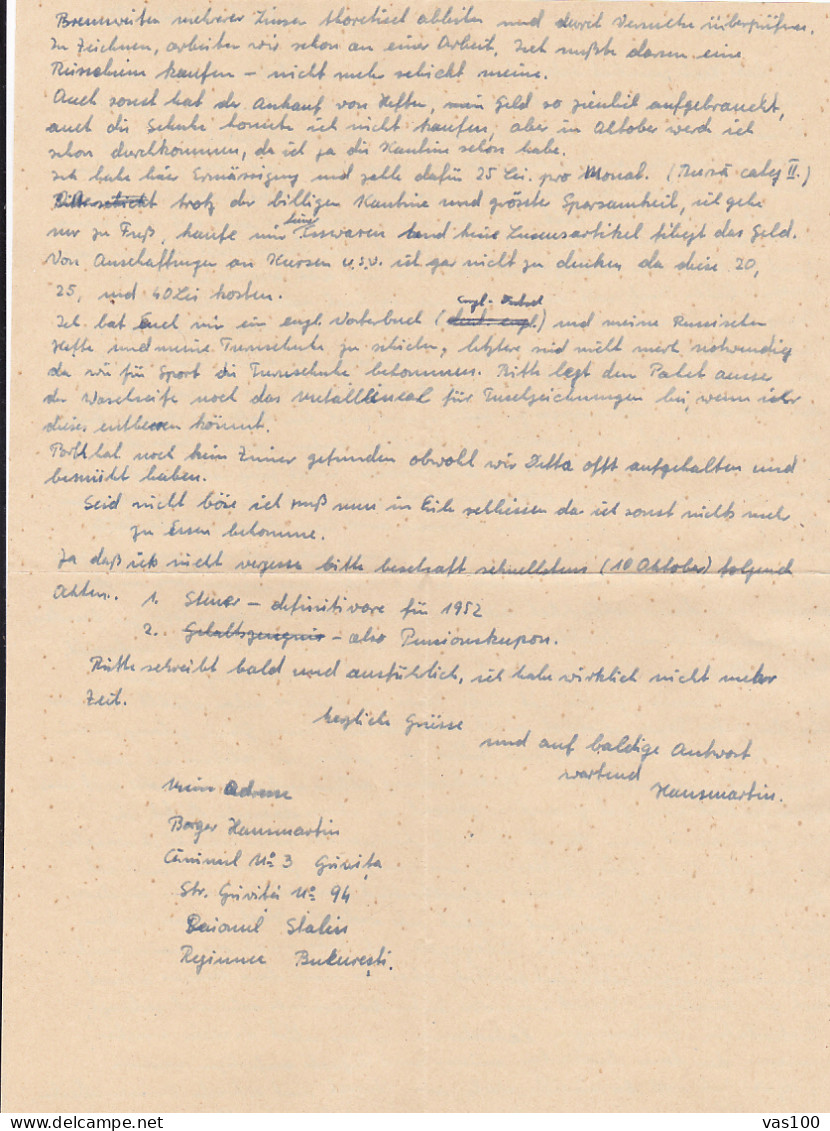 Brennweiten mehrerer Linsen theoretisch ableiten und durch Versuche überprüfen.
In Zeichnen, arbeiten wir schon an einer Arbeit. Ich mußte darum eine
kaufen – nicht mehr schickt meine.
Auch sonst hat der Ankauf von Heften, mein Geld so ziemlich aufgebraucht,
auch die Schuhe konnte ich nicht kaufen, aber im Oktober werde ich
schon durchkommen, da ich ja die Kantine schon habe.
Ich habe hier Ermässigung und zahle dafür 25 Lei pro Monat. (Bursă categ II.)
trotz der billigen Kantine und grösster Sparsamkeit, ich gehe
nur zu Fuß, kaufe mir keine Esswaren und keine Luxusartikel fliegt das Geld.
Von Anschaffungen an Kursen u.s.w. ich gar nicht zu denken da diese 20,
25, und 40 Lei kosten.
Ich bat Euch mir ein engl. Vorterbuch (engl.-Deutsch) und meine Russischen
Hefte und meine Turnschuhe zu schicken, letztere sind nicht mehr notwendig
da wir für Sport die Turnschuhe bekommen. Bitte legt dem Paket ausser
der Waschseife noch das Metalllineal für Tuschzeichnungen bei, wenn ihr
dieses entbeeren könnt.
hat noch kein Zimer gefunden obwohl wir Detta offt aufgehalten und
bemüht haben.
Seid nicht böse ich muß nun in Eile schliessen da ich sonst nichts mehr
zu Essen bekomme.
Ja daß ich's nicht vergesse bitte beschafft schnellstens (10 Oktober) folgend
Akten.. 1. Steuer – definitivare für 1952
2. Gehaltszeugnis – also Pensionskupon.
Bitte schreibt bald und ausführlich, ich habe wirklich nicht mehr
Zeit.
herzliche Grüsse
und auf baldige Antwort
wartend
Hansmartin.
Meine Adresse
Borger Hansmartin
Căminul No 3 Grivița
Str. Griviței No 94
Raionul Stalin
Regiunea București.
vas100